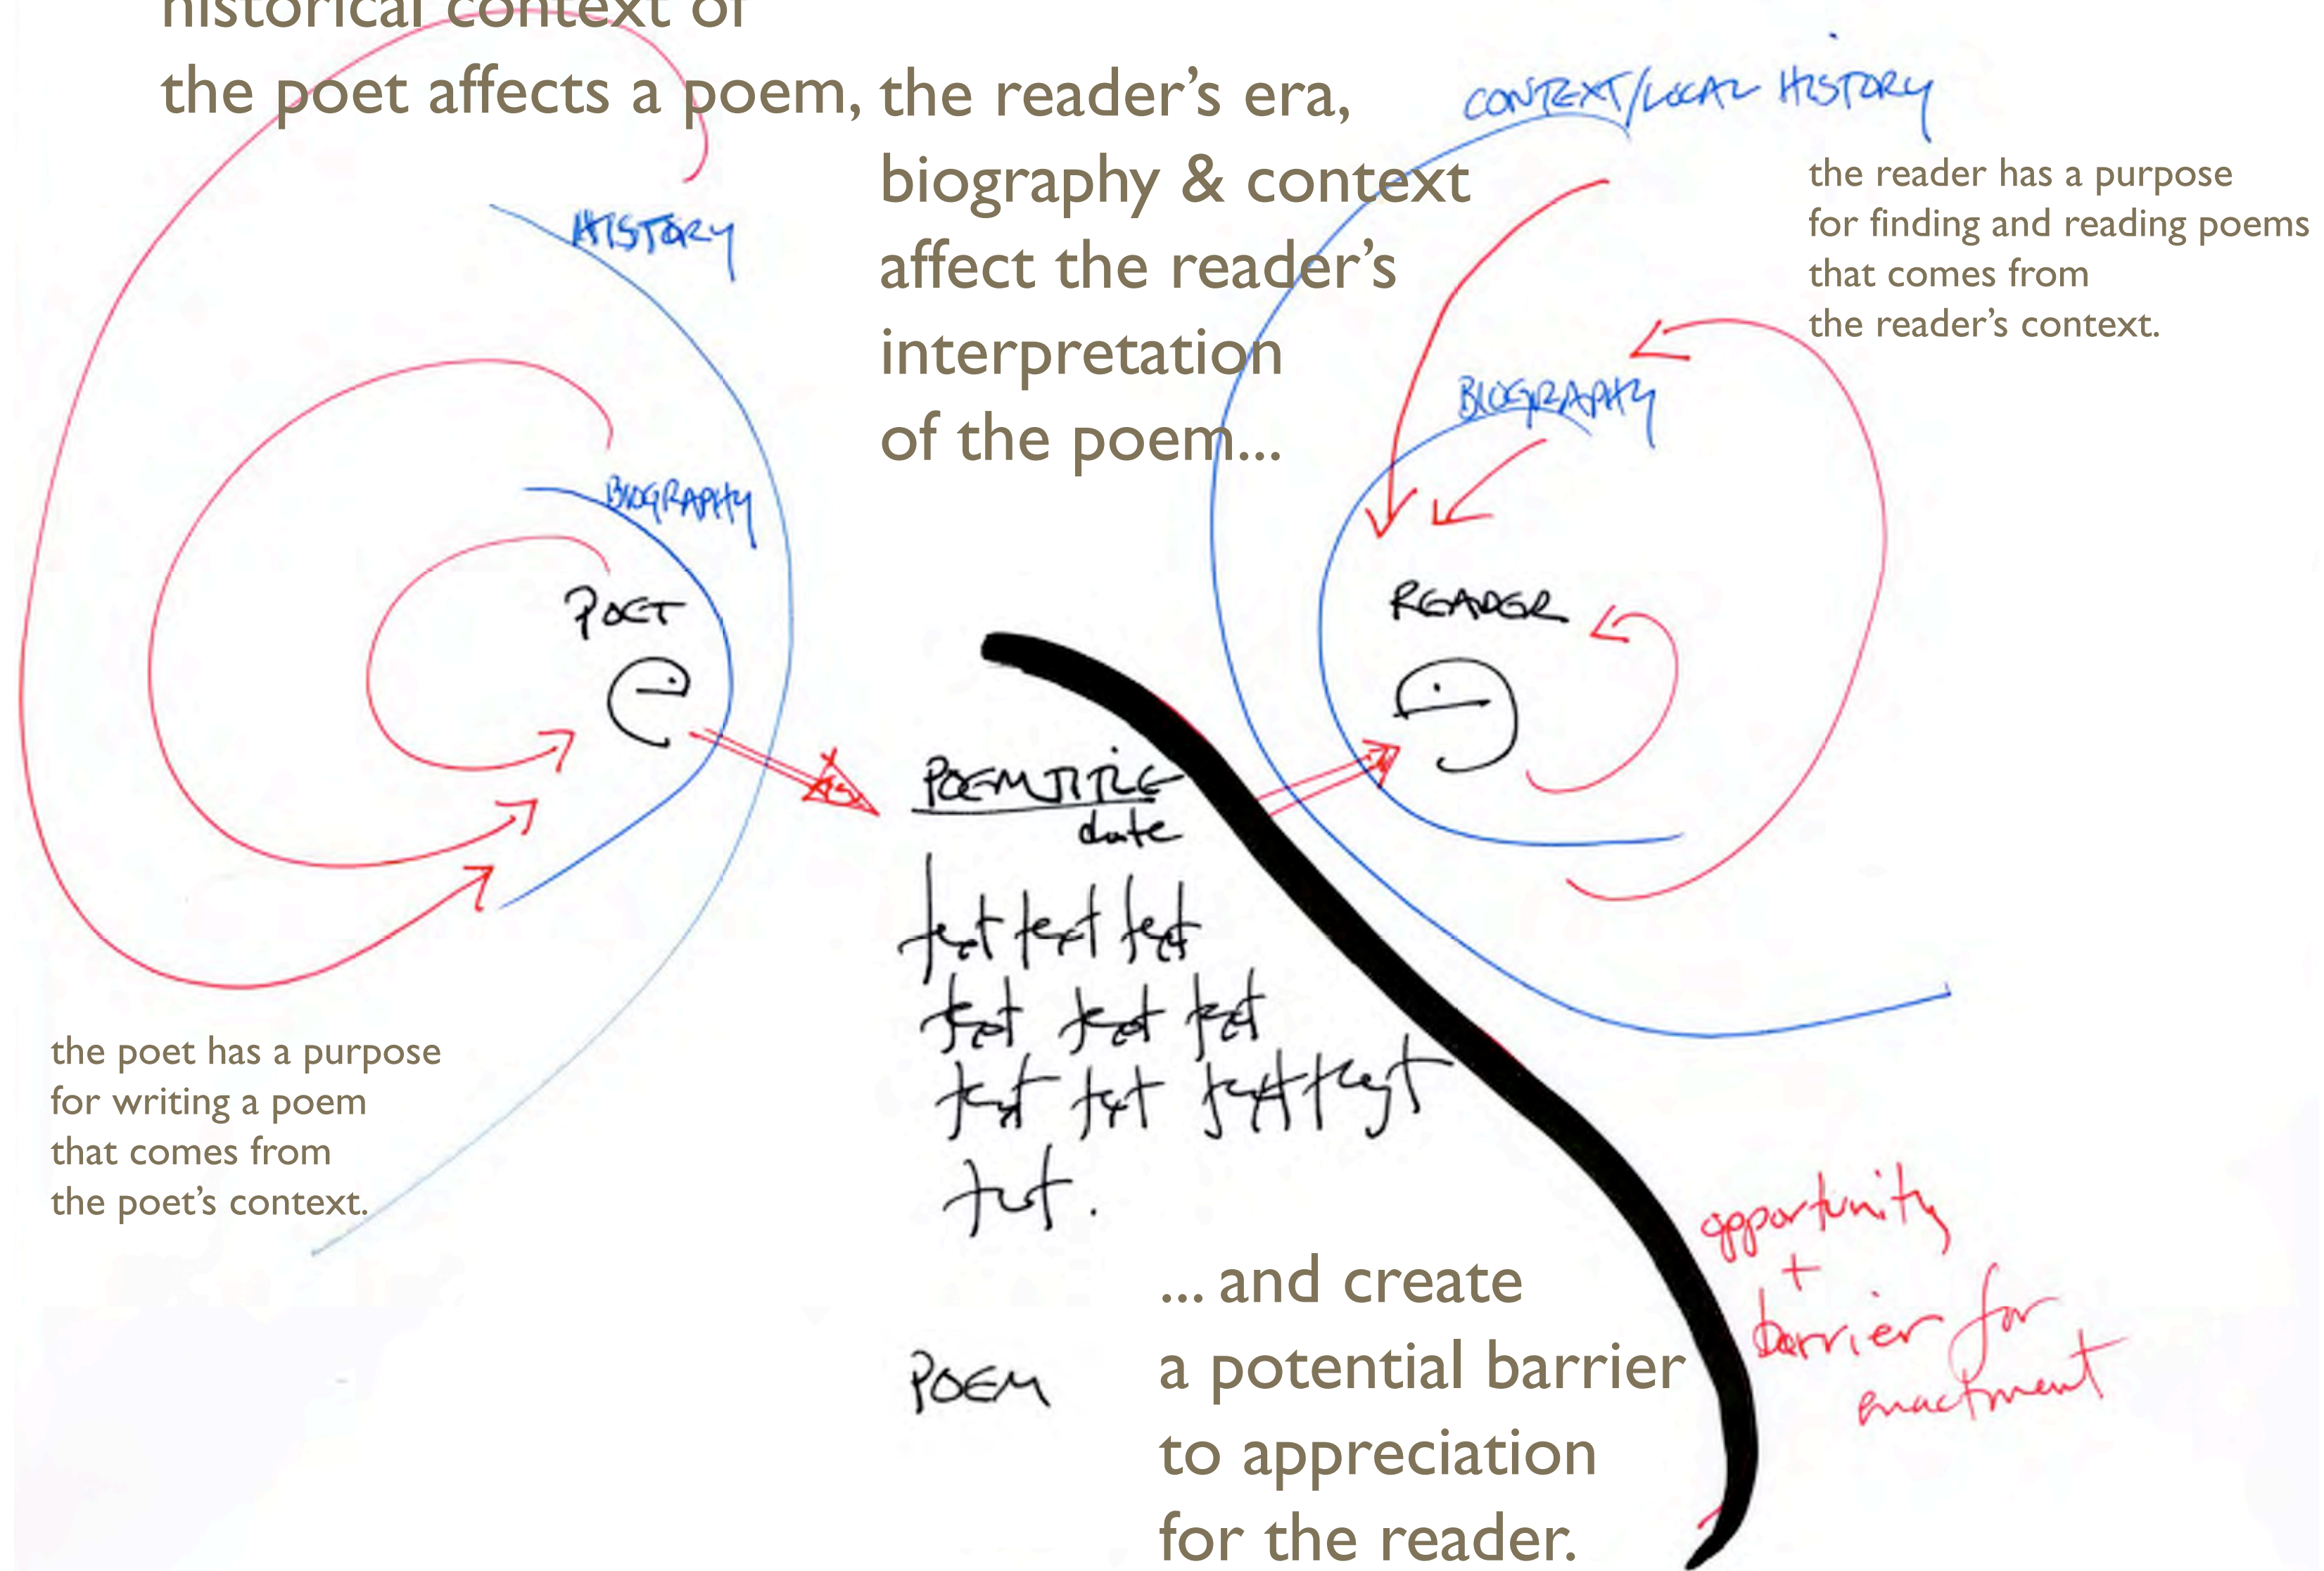 historical context of
the poet affects a poem,
the reader's era,
biography & context
affect the reader's
interpretation
of the poem...
CONTEXT/LOCAL HISTORY
the reader has a purpose
for finding and reading poems
that comes from
the reader's context.
HISTORY
BIOGRAPHY
BIOGRAPHY
POET
READER
POEM TITLE
date
text text text
text text text
text text text text
text.
the poet has a purpose
for writing a poem
that comes from
the poet's context.
opportunity
+
barrier for
enactment
... and create
a potential barrier
to appreciation
for the reader.
POEM